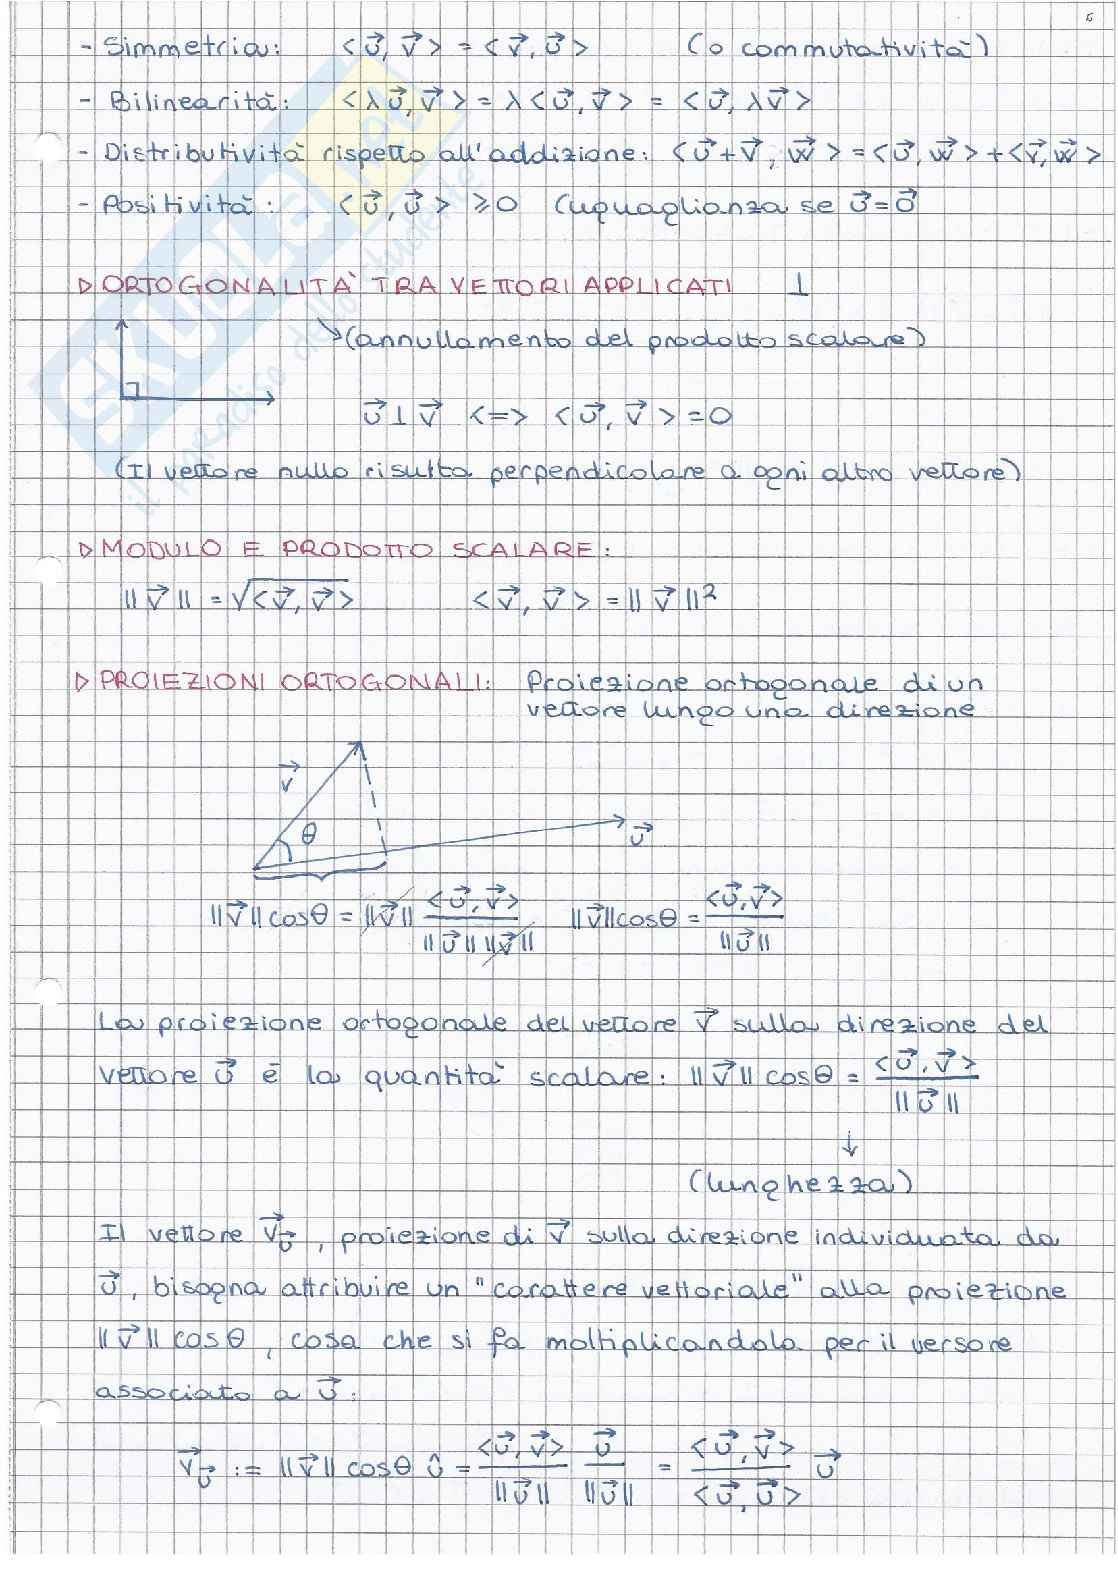 - Simmetria: <u⃗, v⃗> = <v⃗, u⃗> (o commutatività)
- Bilinearità: <λu⃗, v⃗> = λ<u⃗, v⃗> = <u⃗, λv⃗>
- Distributività rispetto all'addizione: <u⃗+v⃗, w⃗> = <u⃗, w⃗> + <v⃗, w⃗>
- Positività: <u⃗, u⃗> ≥ 0 (uguaglianza se u⃗ = 0⃗
▷ ORTOGONALITÀ TRA VETTORI APPLICATI ⊥
↘(annullamento del prodotto scalare)
u⃗ ⊥ v⃗ <=> <u⃗, v⃗> = 0
(Il vettore nullo risulta perpendicolare a ogni altro vettore)
▷ MODULO E PRODOTTO SCALARE:
||v⃗|| = √<v⃗, v⃗> <v⃗, v⃗> = ||v⃗||²
▷ PROIEZIONI ORTOGONALI: Proiezione ortogonale di un
vettore lungo una direzione
v⃗
θ
u⃗
||v⃗|| cosθ = ||v⃗|| <u⃗, v⃗> / ||u⃗|| ||v⃗|| ||v⃗|| cosθ = <u⃗, v⃗> / ||u⃗||
La proiezione ortogonale del vettore v⃗ sulla direzione del
vettore u⃗ è la quantità scalare: ||v⃗|| cosθ = <u⃗, v⃗> / ||u⃗||
↓
(lunghezza)
Il vettore v⃗_u⃗, proiezione di v⃗ sulla direzione individuata da
u⃗, bisogna attribuire un "carattere vettoriale" alla proiezione
||v⃗|| cosθ, cosa che si fa moltiplicandola per il versore
associato a u⃗:
v⃗_u⃗ := ||v⃗|| cosθ û = <u⃗, v⃗> / ||u⃗|| u⃗ / ||u⃗|| = <u⃗, v⃗> / <u⃗, u⃗> u⃗
SKUOLA.net
il paradiso dello studente